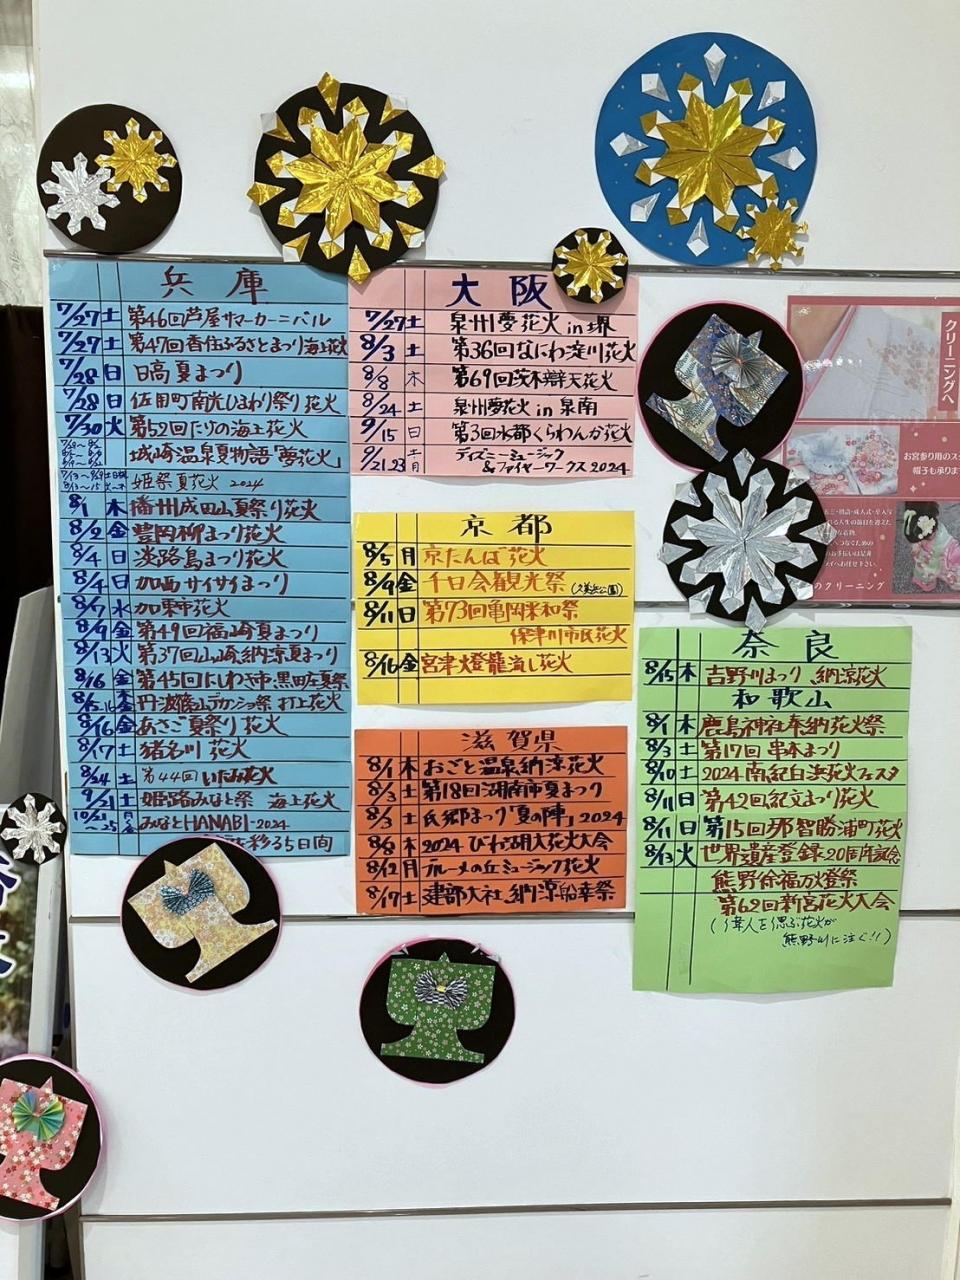 兵庫
7/27 土 第46回芦屋サマーカーニバル
7/27 土 第47回香住ふるさとまつり海上花火
7/28 日 日高夏まつり
7/28 日 佐用町南光ひまわり祭り花火
7/30 火 第52回たけの海上花火
城崎温泉夏物語「夢花火」
姫祭夏花火 2024
8/1 木 播州成田山夏祭り花火
8/2 金 豊岡柳まつり花火
8/4 日 淡路島まつり花火
8/4 日 加西サイサイまつり
8/7 水 加東市花火
8/9 金 第49回福崎夏まつり
8/13 火 第37回山崎納涼夏まつり
8/16 金 第45回にしわき市・黒田庄夏祭
8/15.16 木金 丹波篠山デカンショ祭 打上花火
8/16 金 あさご夏祭り花火
8/17 土 猪名川花火
8/24 土 第44回いたみ花火
9/21 土 姫路みなと祭 海上花火
10/21〜25 月金 みなとHANABI-2024
を彩る5日間
大阪
7/27 土 泉州夢花火 in 堺
8/3 土 第36回なにわ淀川花火
8/8 木 第69回茨木辯天花火
8/24 土 泉州夢花火 in 泉南
9/15 日 第3回水都くらわんか花火
9/21.23 土月 ディズニーミュージック
&ファイヤーワークス2024
京都
8/5 月 京たんば花火
8/9 金 千日会観光祭(久美浜公園)
8/11 日 第73回亀岡平和祭
保津川市民花火
8/16 金 宮津燈籠流し花火
滋賀県
8/1 木 おごと温泉納涼花火
8/3 土 第18回湖南市夏まつり
8/3 土 氏郷まつり「夏の陣」2024
8/8 木 2024 びわ湖大花火大会
8/12 月 ブルーメの丘ミュージック花火
8/17 土 建部大社 納涼船幸祭
奈良
8/15 木 吉野川まつり 納涼花火
和歌山
8/1 木 鹿島神社奉納花火祭
8/3 土 第17回串本まつり
8/10 土 2024南紀白浜花火フェスタ
8/11 日 第42回紀文まつり花火
8/11 日 第15回那智勝浦町花火
8/13 火 世界遺産登録20周年記念
熊野徐福万燈祭
第62回新宮花火大会
(偉人を偲ぶ花火が
熊野川に注ぐ!!)
クリーニングへ
お宮参り用のス
帽子も承りま
のクリーニング